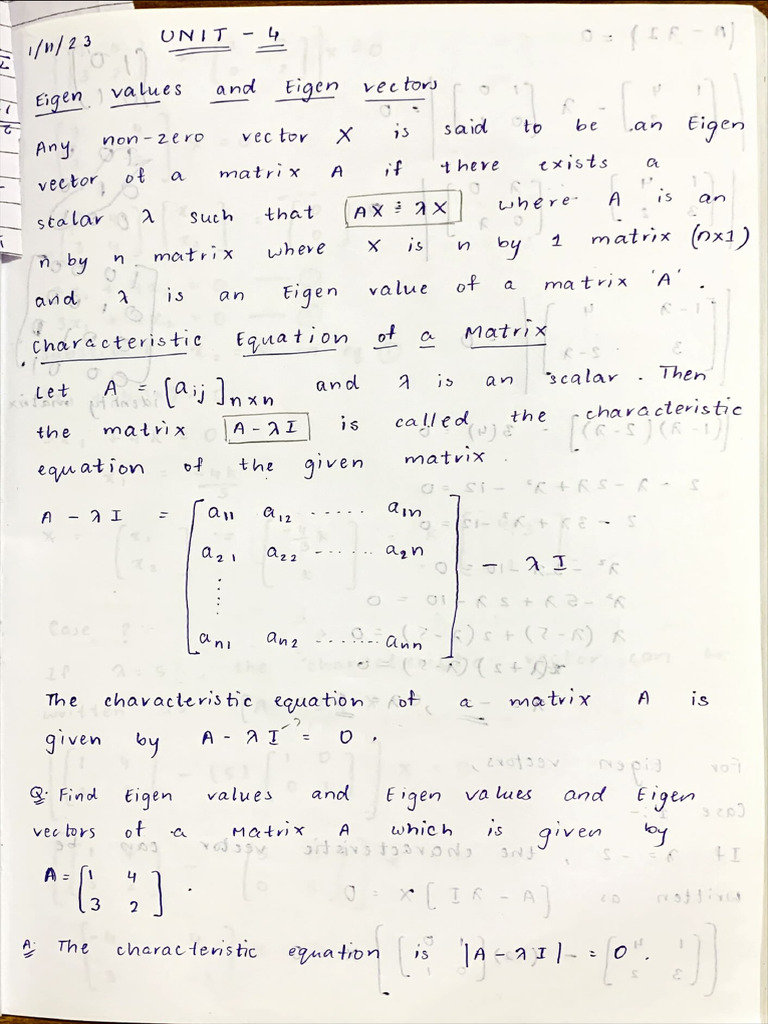 1/11/23 UNIT - 4
Eigen values and Eigen vectors
Any non-zero vector X is said to be an Eigen
vector of a matrix A if there exists a
scalar λ such that AX = λX where A is an
n by n matrix where X is n by 1 matrix (n×1)
and λ is an Eigen value of a matrix 'A'.
Characteristic Equation of a Matrix
Let A = [aij]n×n and λ is an scalar. Then
the matrix A - λI is called the characteristic
equation of the given matrix.
A - λI = [a11 a12 ...... a1n
a21 a22 ...... a2n
⋮
an1 an2 ....... ann] - λI
The characteristic equation of a matrix A is
given by A - λI = 0.
Q: Find Eigen values and Eigen values and Eigen
vectors of a Matrix A which is given by
A = [1 4
3 2].
A: The characteristic equation is |A - λI| = 0.